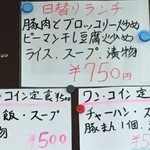 日替りランチ
豚肉とブロッコリー炒め
ピーマン干し豆腐炒め
ライス、スープ、漬物
¥750円
ワンコイン定食¥500
飯・スープ
物
¥500
ワン・コイン定
チャーハン・ス
豚まん1個、